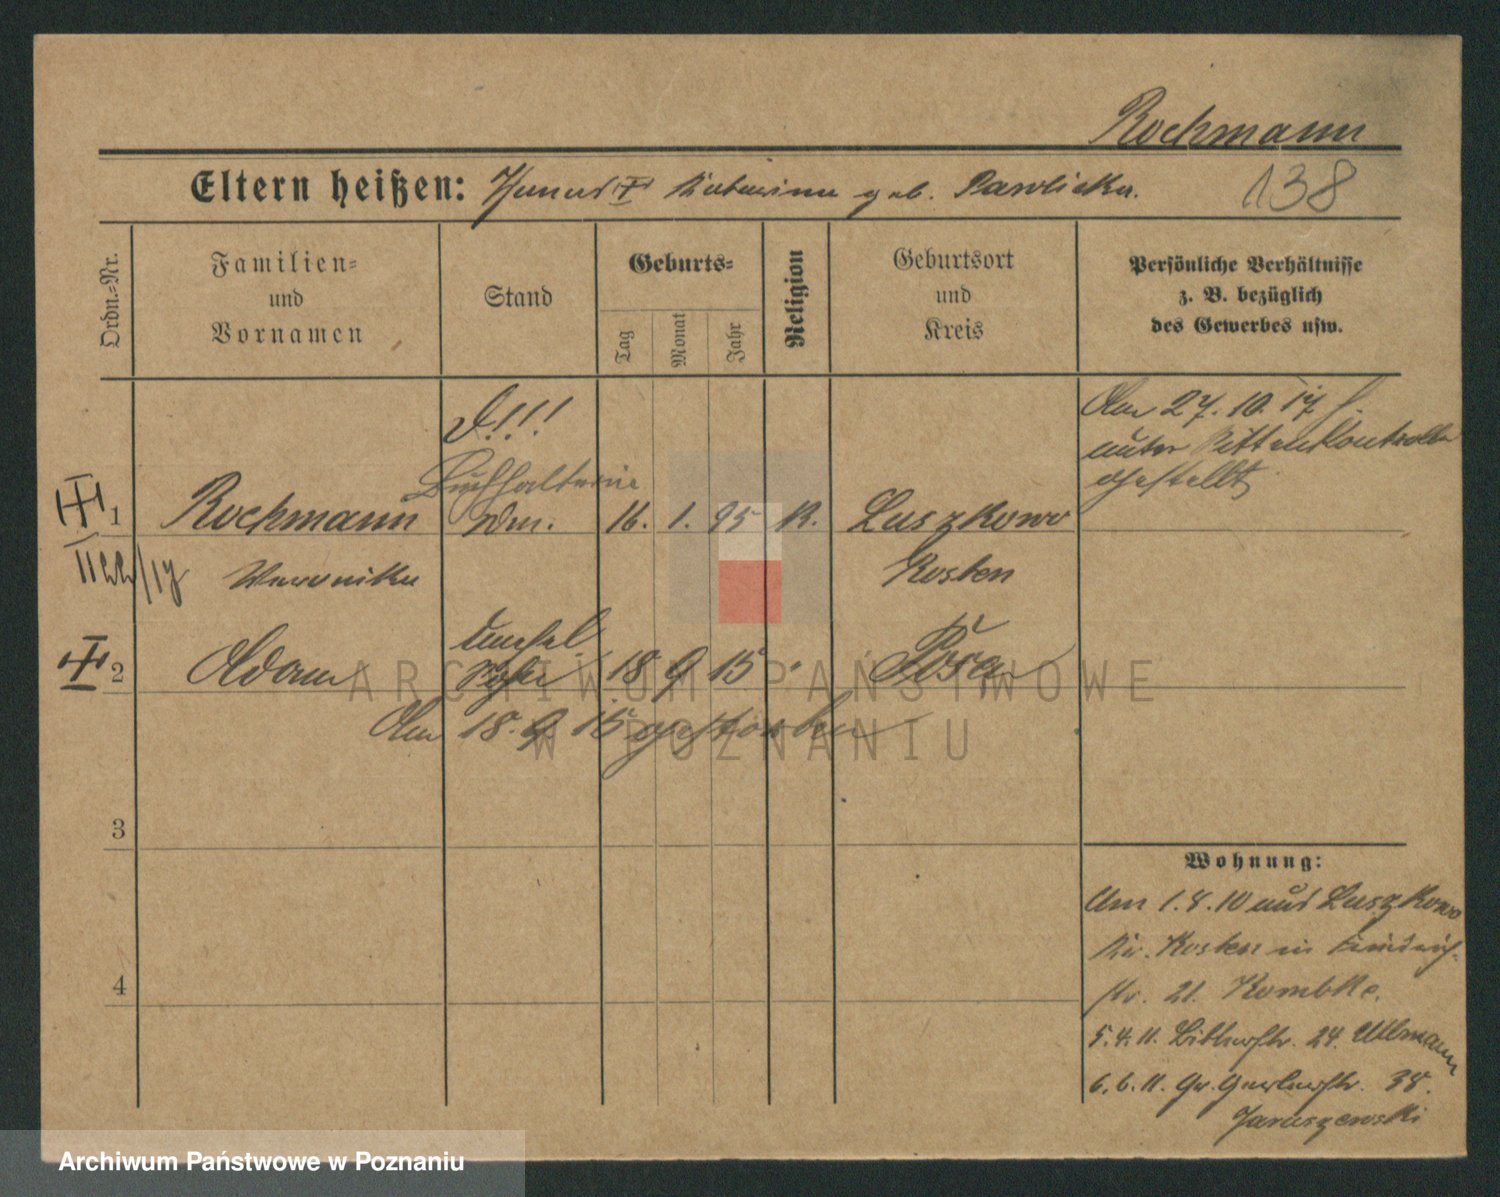 Rochmann
Eltern heißen: geb. Pawlicka.
138
Ordn.-Nr.
Familien-
und
Vornamen
Stand
Geburts-
Tag
Monat
Jahr
Religion
Geburtsort
und
Kreis
Persönliche Verhältnisse
z. B. bezüglich
des Gewerbes usw.
1 Rochmann 16. 1. 95 K. Luszkowo
Am 27. 10. 17
unter Sittenkontrolle
gestellt
Veronika Kosten
2 Adam 18 9 15 Posen
Am 18. 9. 15 gestorben
3
4
Wohnung:
Am 1.4.10 aus Luszkowo
Kr. Kosten in
str. 21.
5.4.11. str. 24. Ullmann
6.6.11. Gr. Gerberstr. 38.
Jaruszewski
ARCHIWUM PAŃSTWOWE
W POZNANIU
Archiwum Państwowe w Poznaniu